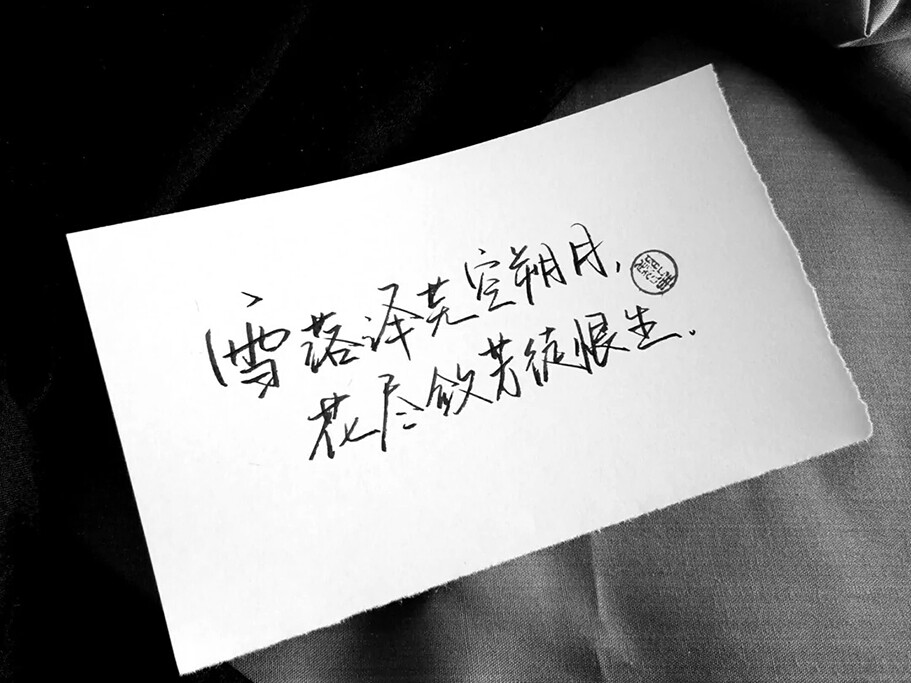 雪落泽芜空朔月,
花尽敛芳徒恨生.